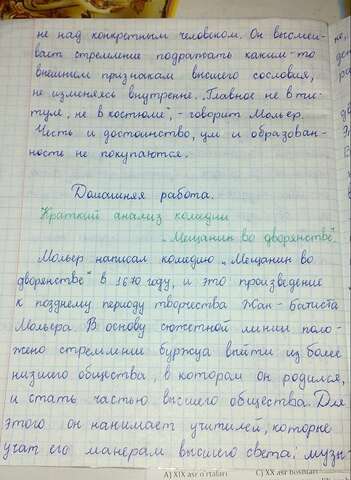 не над конкретным человеком. Он высмеи-
вает стремление подражать каким-то
внешним признакам высшего сословия,
не изменяясь внутренне. "Главное не в ти-
туле, не в костюме", - говорит Мольер.
Честь и достоинство, ум и образован-
ность не покупаются.
Домашняя работа.
Краткий анализ комедии
„Мещанин во дворянстве".
Мольер написал комедию „Мещанин во
дворянстве" в 1670 году, и это произведение
к позднему периоду творчества Жан-Батиста
Мольера. В основу сюжетной линии поло-
жено стремление буржуа выйти из более
низшего общества, в котором он родился,
и стать частью высшего общества. Для
этого он нанимает учителей, которые
учат его манерам высшего света: музы-
A) XIX asr o'rtalari C) XX asr boshlari